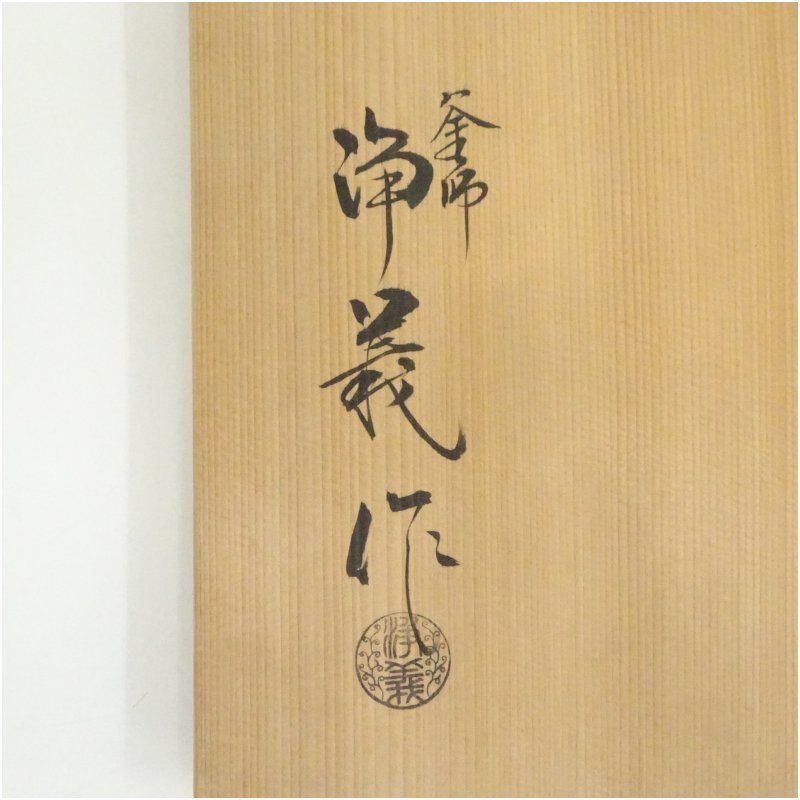 釜師
浄義作
浄義